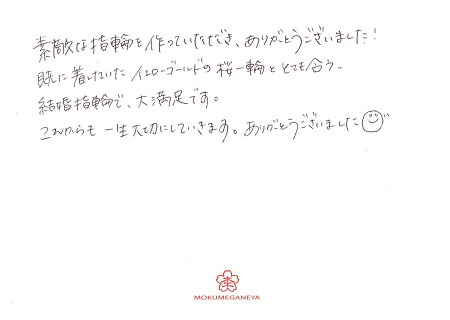 素敵な指輪を作っていただき、ありがとうございました!
既に着けていたイエローゴールドの桜一輪ととても合う、
結婚指輪で、大満足です。
これからも一生大切にしていきます。ありがとうございました
MOKUMEGANEYA